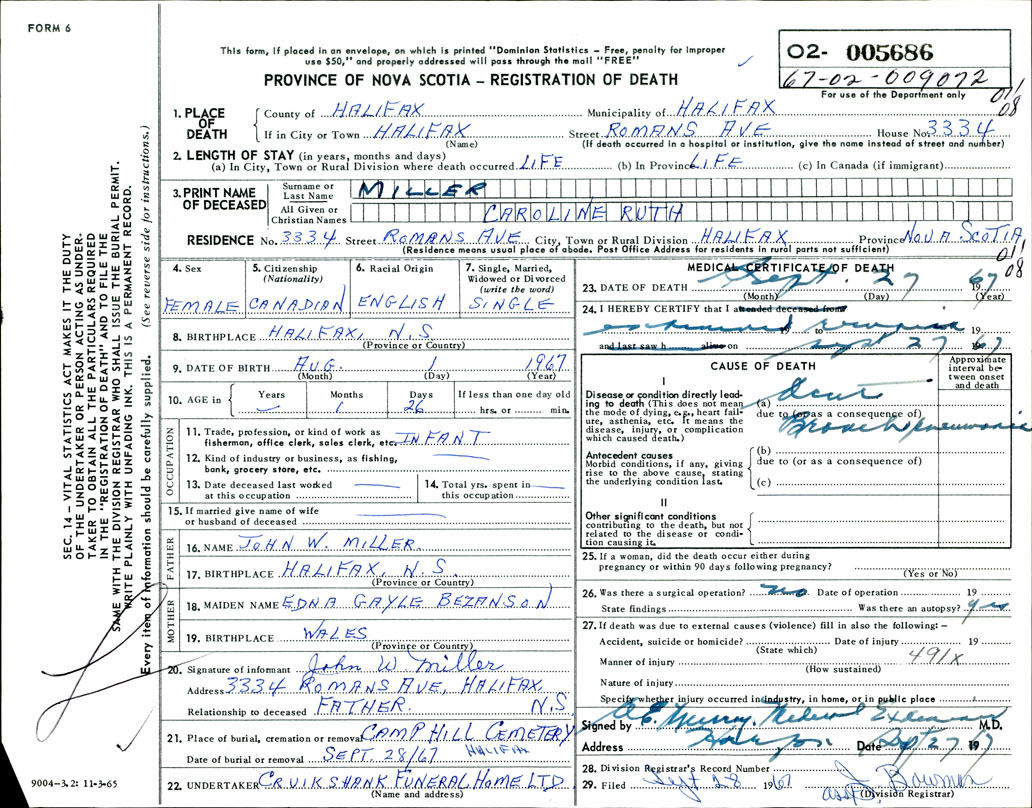 FORM 6
This form, if placed in an envelope, on which is printed "Dominion Statistics – Free, penalty for improper
use $50," and properly addressed will pass through the mail "FREE"
PROVINCE OF NOVA SCOTIA – REGISTRATION OF DEATH
02- 005686
67-02-009072
For use of the Department only
011
08
1. PLACE OF DEATH
County of HALIFAX Municipality of HALIFAX
If in City or Town HALIFAX Street ROMANS AVE House No. 3334
(Name) (If death occurred in a hospital or institution, give the name instead of street and number)
2. LENGTH OF STAY (in years, months and days)
(a) In City, Town or Rural Division where death occurred. LIFE (b) In Province LIFE (c) In Canada (if immigrant)
3. PRINT NAME OF DECEASED
Surname or Last Name MILLER
All Given or Christian Names CAROLINE RUTH
RESIDENCE No. 3334 Street ROMANS AVE City, Town or Rural Division HALIFAX Province NOVA SCOTIA
(Residence means usual place of abode. Post Office Address for residents in rural parts not sufficient)
011
08
4. Sex
FEMALE
5. Citizenship
(Nationality)
CANADIAN
6. Racial Origin
ENGLISH
7. Single, Married,
Widowed or Divorced
(write the word)
SINGLE
8. BIRTHPLACE HALIFAX, N.S.
(Province or Country)
9. DATE OF BIRTH AUG. 1 1967
(Month) (Day) (Year)
10. AGE in
Years Months Days If less than one day old
1 26 hrs. or min.
OCCUPATION
11. Trade, profession, or kind of work as
fisherman, office clerk, sales clerk, etc. INFANT
12. Kind of industry or business, as fishing,
bank, grocery store, etc.
13. Date deceased last worked
at this occupation
14. Total yrs. spent in
this occupation
15. If married give name of wife
or husband of deceased
FATHER
16. NAME JOHN W. MILLER.
17. BIRTHPLACE HALIFAX, N.S.
(Province or Country)
MOTHER
18. MAIDEN NAME EDNA GAYLE BEZANSON
19. BIRTHPLACE WALES
(Province or Country)
20. Signature of informant John W Miller
Address 3334 ROMANS AVE, HALIFAX
Relationship to deceased FATHER. N.S
21. Place of burial, cremation or removal CAMP HILL CEMETERY
HALIFAX
Date of burial or removal SEPT. 28/67
22. UNDERTAKER CRUIKSHANK FUNERAL HOME LTD.
(Name and address)
MEDICAL CERTIFICATE OF DEATH
23. DATE OF DEATH Sept. 27 1967
(Month) (Day) (Year)
24. I HEREBY CERTIFY that I attended deceased from
19 to 19
and last saw h alive on Sept 27 1967
CAUSE OF DEATH
Approximate
interval be-
tween onset
and death
I
Disease or condition directly lead-
ing to death (This does not mean
the mode of dying, e.g., heart fail-
ure, asthenia, etc. It means the
disease, injury, or complication
which caused death.)
(a) Acute
due to (or as a consequence of)
Bronchopneumonia
Antecedent causes
Morbid conditions, if any, giving
rise to the above cause, stating
the underlying condition last.
(b)
due to (or as a consequence of)
(c)
II
Other significant conditions
contributing to the death, but not
related to the disease or condi-
tion causing it.
25. If a woman, did the death occur either during
pregnancy or within 90 days following pregnancy?
(Yes or No)
26. Was there a surgical operation? no Date of operation 19
State findings Was there an autopsy? yes
27. If death was due to external causes (violence) fill in also the following: –
Accident, suicide or homicide? Date of injury 19
(State which)
491X
Manner of injury
(How sustained)
Nature of injury
Specify whether injury occurred in industry, in home, or in public place
Signed by Murray, Medical Examiner M.D.
Address Date Sept 27 1967
28. Division Registrar's Record Number
29. Filed Sept 28 1967 J. Bowman
asst (Division Registrar)
9004–3.2: 11-3-65
SEC. 14 – VITAL STATISTICS ACT MAKES IT THE DUTY
OF THE UNDERTAKER OR PERSON ACTING AS UNDER-
TAKER TO OBTAIN ALL THE PARTICULARS REQUIRED
IN THE "REGISTRATION OF DEATH" AND TO FILE THE
SAME WITH THE DIVISION REGISTRAR WHO SHALL ISSUE THE BURIAL PERMIT.
WRITE PLAINLY WITH UNFADING INK. THIS IS A PERMANENT RECORD.
Every item of information should be carefully supplied. (See reverse side for instructions.)